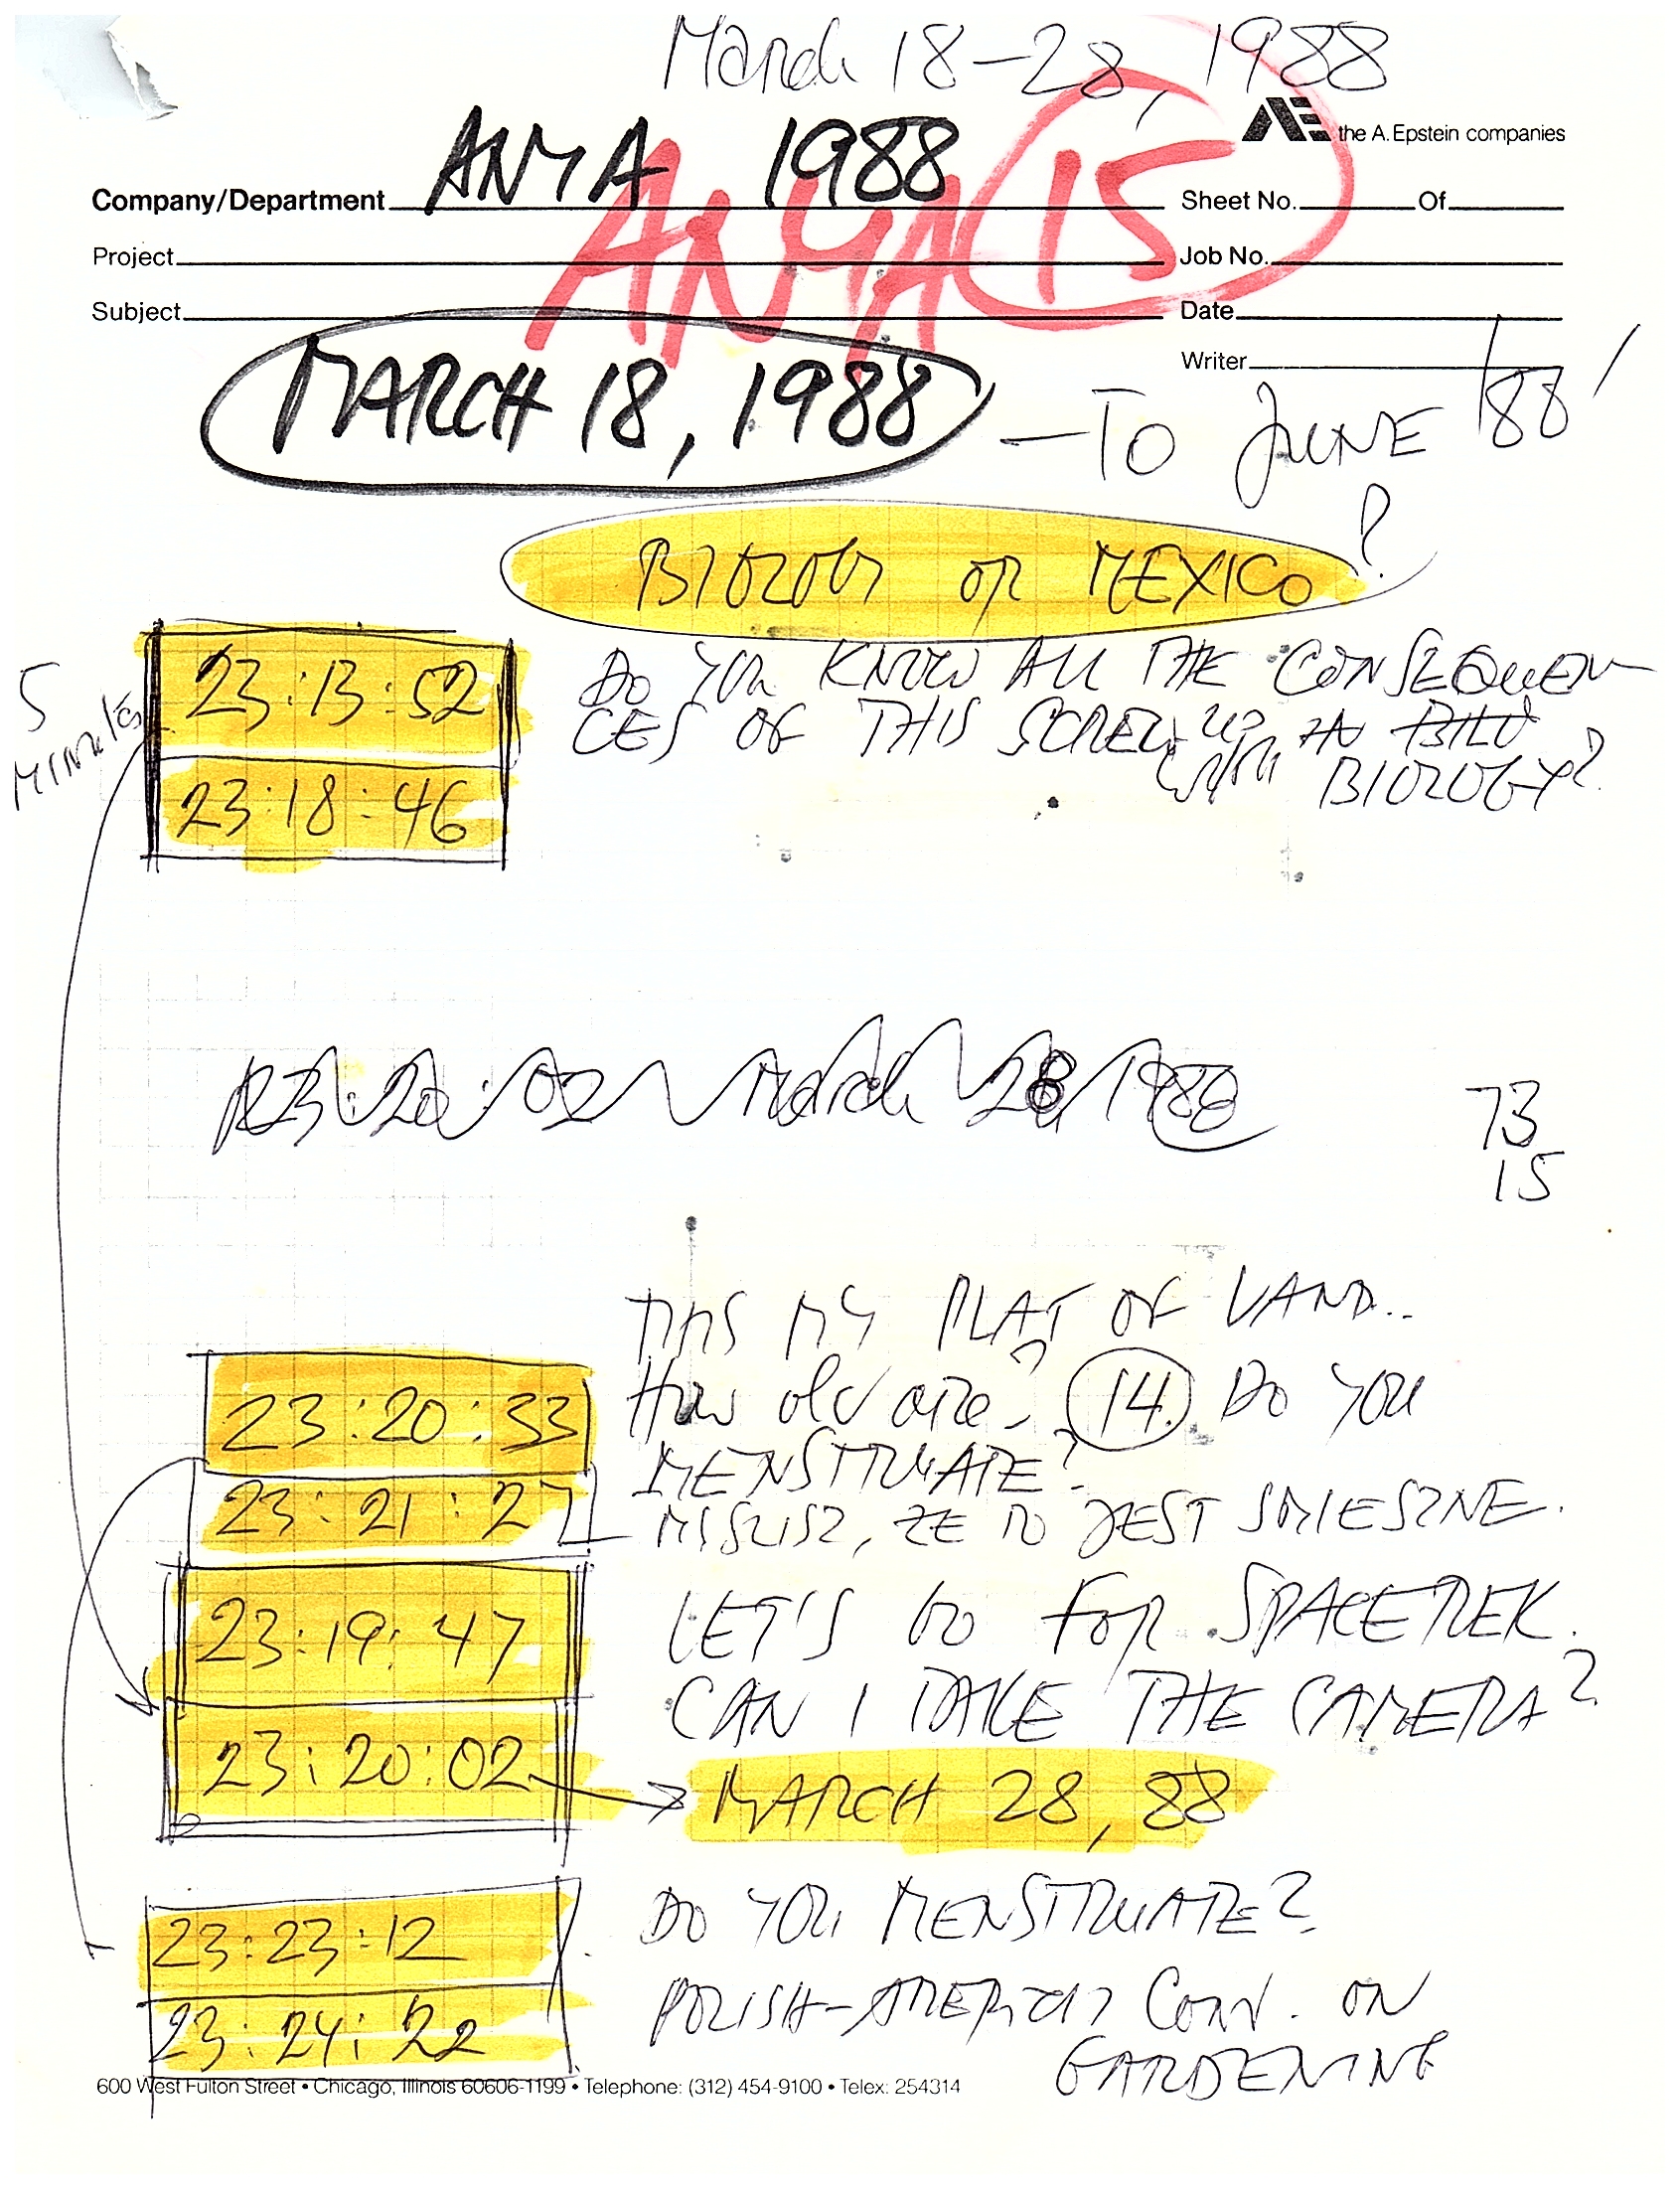 March 18-28, 1988
AE the A. Epstein companies
ANYA 1988
ANYA 15
Company/Department
Sheet No. Of
Project
Job No.
Subject
Date
Writer
MARCH 18, 1988 - TO JUNE '88
BIOLOGY OR MEXICO?
5 MINUTES
23:13:52
DO YOU KNOW ALL THE CONSEQUEN
CES OF THIS SCREW-UP
with BIOLOGY?
23:18:46
23:20:02 March 28 1988
73
15
THIS MY PLAT OF LAND..
23:20:33
How old are? 14. DO YOU
MENSTRUATE?
23:21:27
MYSLISZ, ZE TO JEST SMIESZNE.
23:19:47
LET'S GO FOR SPACETREK.
CAN I TAKE THE CAMERA?
23:20:02 → MARCH 28, 88
23:23:12
DO YOU MENSTRUATE?
23:24:22
POLISH-AMERICAN CONV. ON
GARDENING
600 West Fulton Street • Chicago, Illinois 60606-1199 • Telephone: (312) 454-9100 • Telex: 254314